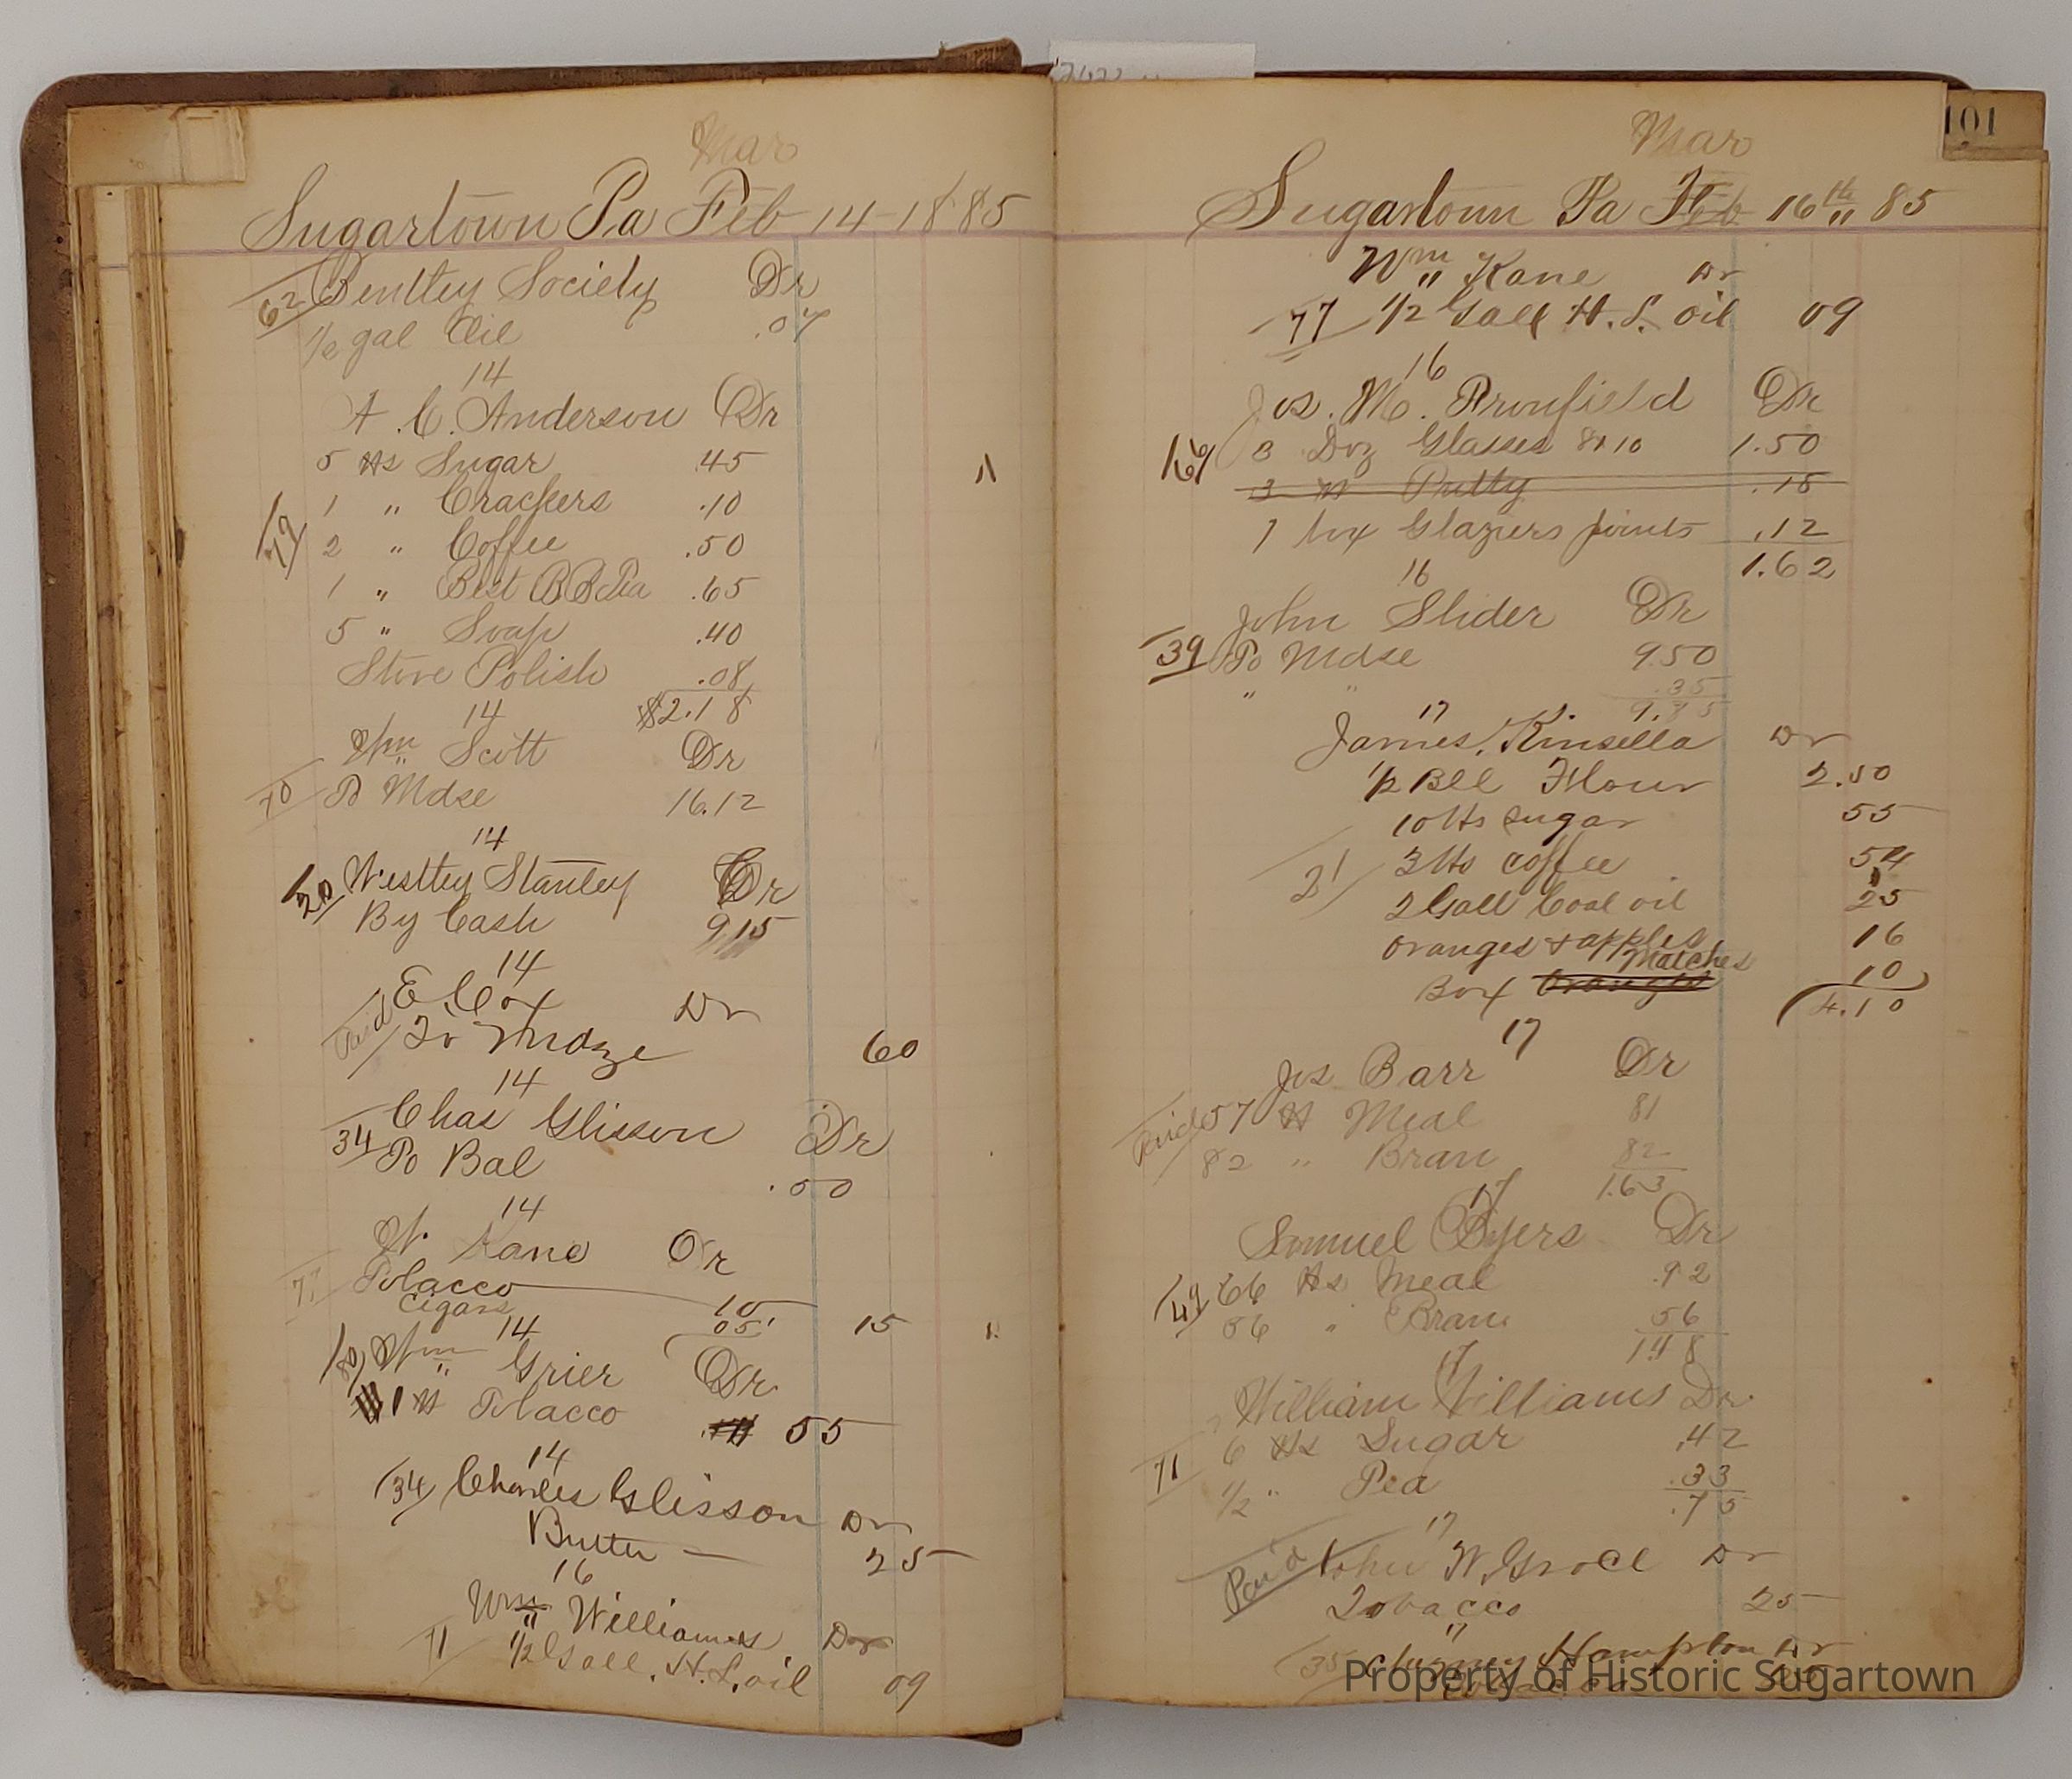 Mar
Sugartown Pa Feb 14 1885
62 Bentley Society Dr
1/2 gal Oil .07
14
A. C. Anderson Dr
5 lbs Sugar .45
1 " Crackers .10
79
2 " Coffee .50
1 " Best BB Tea .65
5 " Soap .40
Stove Polish .08
$2.18
14
Wm Scott Dr
70 To Mdse 16.12
14
20 Westley Stanley Cr
By Cash 915
14
E Cox Dr
Paid To Mdze 60
14
Chas Glisson Dr
34 To Bal
.50
14
W. Kane Dr
77 Tobacco 10
Cigars 05 15
14
80 Wm Grier Dr
1 lb Tobacco 55
14
34 Charles Glisson Dr
Butter — 25
16
Wm Williams Dr
71 1/2 Gall. H.L. oil 09
101
Mar
Sugartown Pa Feb 16th 85
Wm Kane Dr
77 1/2 Gall H.L. oil 09
16
Jos. M. Dr
3 Doz Glasses 8x10 1.50
3 lb Putty .15
1 box Glaziers points .12
1.62
16
John Slider Dr
39 To Mdse 9.50
" " .35
9.85
17
James Kinsella Dr
1/2 Bbl Flour 2.50
10 lbs sugar 55
21 3 lbs coffee 54
2 Gall Coal oil 25
oranges & apples 16
Matches
Box Oranges 10
4.10
17
Jos Barr Dr
Paid 57 lb Meal 81
82 " Bran 82
1.63
17
Samuel Byers Dr
49 66 lbs Meal .92
56 " Bran 56
148
17
William Williams Dr
6 lbs Sugar .42
71
1/2 " Tea .33
.75
17
Paid John W. Dr
Tobacco 25
17
35 Hampton Dr
Property of Historic Sugartown